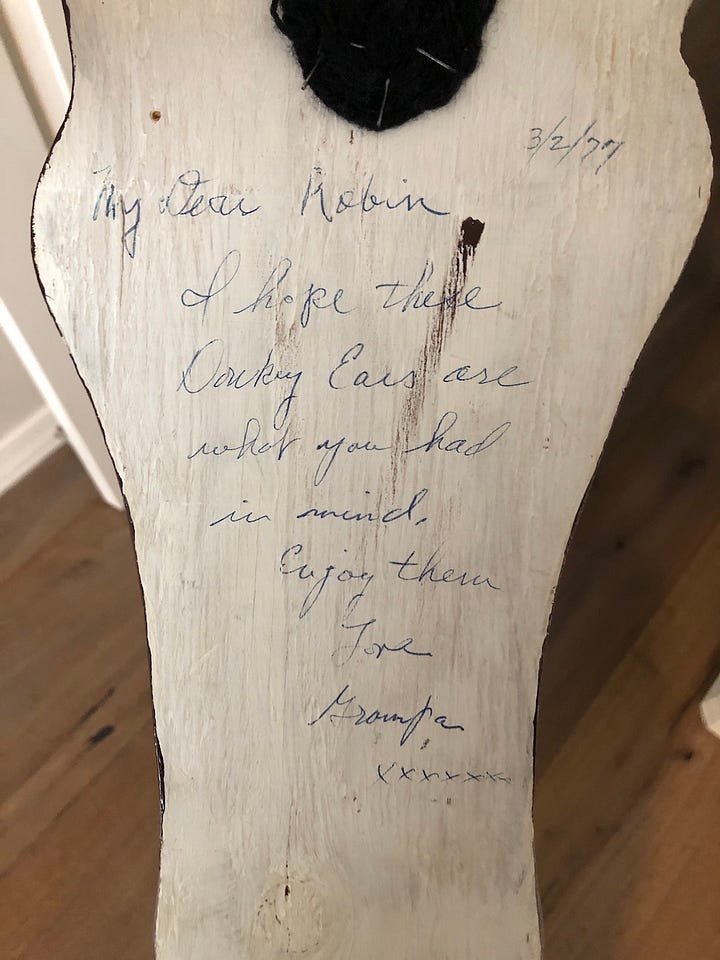 3/2/77
My Dear Robin
I hope these
Donkey Ears are
what you had
in mind.
Enjoy them
Love
Grampa
xxxxxxx